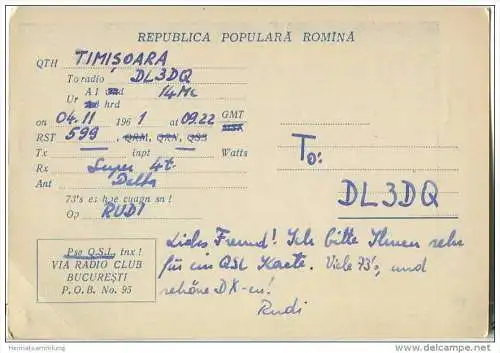 REPUBLICA POPULARĂ ROMÎNĂ
QTH TIMIȘOARA
To radio DL3DQ
Ur A1 14Mc
hrd
on 04. II 1961 at 09.22 GMT
RST 599, QRM, QRN, QSB
Tx inpt Watts
Rx Super 4t.
Ant Delta
73's es hpe cuagn sn!
Op RUDI
To:
DL3DQ
Pse Q.S.L. tnx!
VIA RADIO CLUB
BUCUREȘTI
P.O.B. No. 95
Liebes Freund! Ich bitte Ihnen sehr
für ein QSL Karte. Viele 73's, und
schöne DX-en!
Rudi
Heimatsammlung
delcampe.net